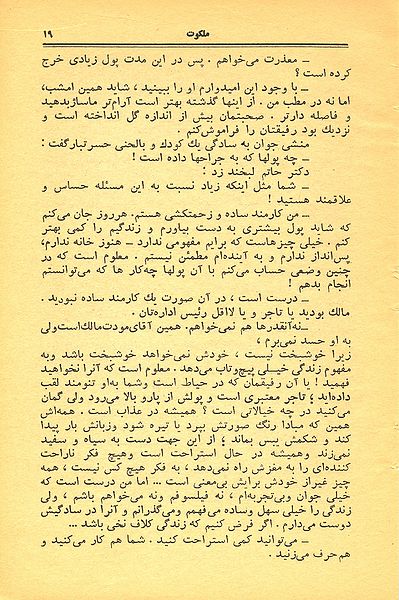 ملکوت ۱۹
ـ معذرت می‌خواهم . پس در این مدت پول زیادی خرج
کرده است ؟
ـ با وجود این امیدوارم او را ببینید ، شاید همین امشب،
اما نه در مطب من . از اینها گذشته بهتر است آرام‌تر ماساژبدهید
و فاصله دارتر . صحبتمان بیش از اندازه گل انداخته است و
نزدیك بود رفیقتان را فراموش‌کنم .
منشی جوان به سادگی یك کودك و بالحنی حسرتبارگفت :
ـ چه پولها که به جراحها داده است !
دکتر حاتم لبخند زد :
ـ شما مثل اینکه زیاد نسبت به این مسئله حساس و
علاقمند هستید !
ـ من کارمند ساده و زحمتکشی هستم. هرروز جان می‌کنم
که شاید پول بیشتری به دست بیاورم و زندگیم را کمی بهتر
کنم . خیلی چیزهاست که برایم مفهومی ندارد ـ هنوز خانه ندارم،
پس‌انداز ندارم و به آینده‌ام مطمئن نیستم . معلوم است که در
چنین وضعی حساب می‌کنم با آن پولها چه‌کار ها که می‌توانستم
انجام بدهم !
ـ درست است ، در آن صورت یك کارمند ساده نبودید .
مالك بودید یا تاجر و یا لااقل رئیس اداره‌تان .
ـ نه‌آنقدرها هم نمی‌خواهم. همین آقای‌مودت‌مالك‌است‌ولی
به او حسد نمی‌برم ،
زیرا خوشبخت نیست ، خودش نمی‌خواهد خوشبخت باشد وبه
مفهوم زندگی خیلی پیچ‌وتاب می‌دهد. معلوم است که آنرا نخواهید
فهمید ! یا آن رفیقمان که در حیاط است وشما به‌او تنومند لقب
داده‌اید ؛ تاجر معتبری است و پولش از پارو بالا می‌رود ولی گمان
می‌کنید در چه خیالاتی است ؟ همیشه در عذاب است . همه‌اش
همین که مبادا رنگ صورتش بپرد یا تیره شود وزبانش بار پیدا
کند و شکمش یبس بماند ؛ از این جهت دست به سیاه و سفید
نمی‌زند وهمیشه در حال استراحت است وهیچ فکر ناراحت
کننده‌ای را به مغزش راه نمی‌دهد ، به فکر هیچ کس نیست ، همه
چیز غیراز خودش برایش بی‌معنی است ... اما من درست است که
خیلی جوان وبی‌تجربه‌ام ، نه فیلسوفم ونه می‌خواهم باشم ، ولی
زندگی را خیلی سهل وساده می‌فهمم ومی‌گذرانم و آنرا در سادگیش
دوست می‌دارم . اگر فرض کنیم که زندگی کلاف نخی باشد ...
ـ می‌توانید کمی استراحت کنید . شما هم کار می‌کنید و
هم‌حرف می‌زنید .